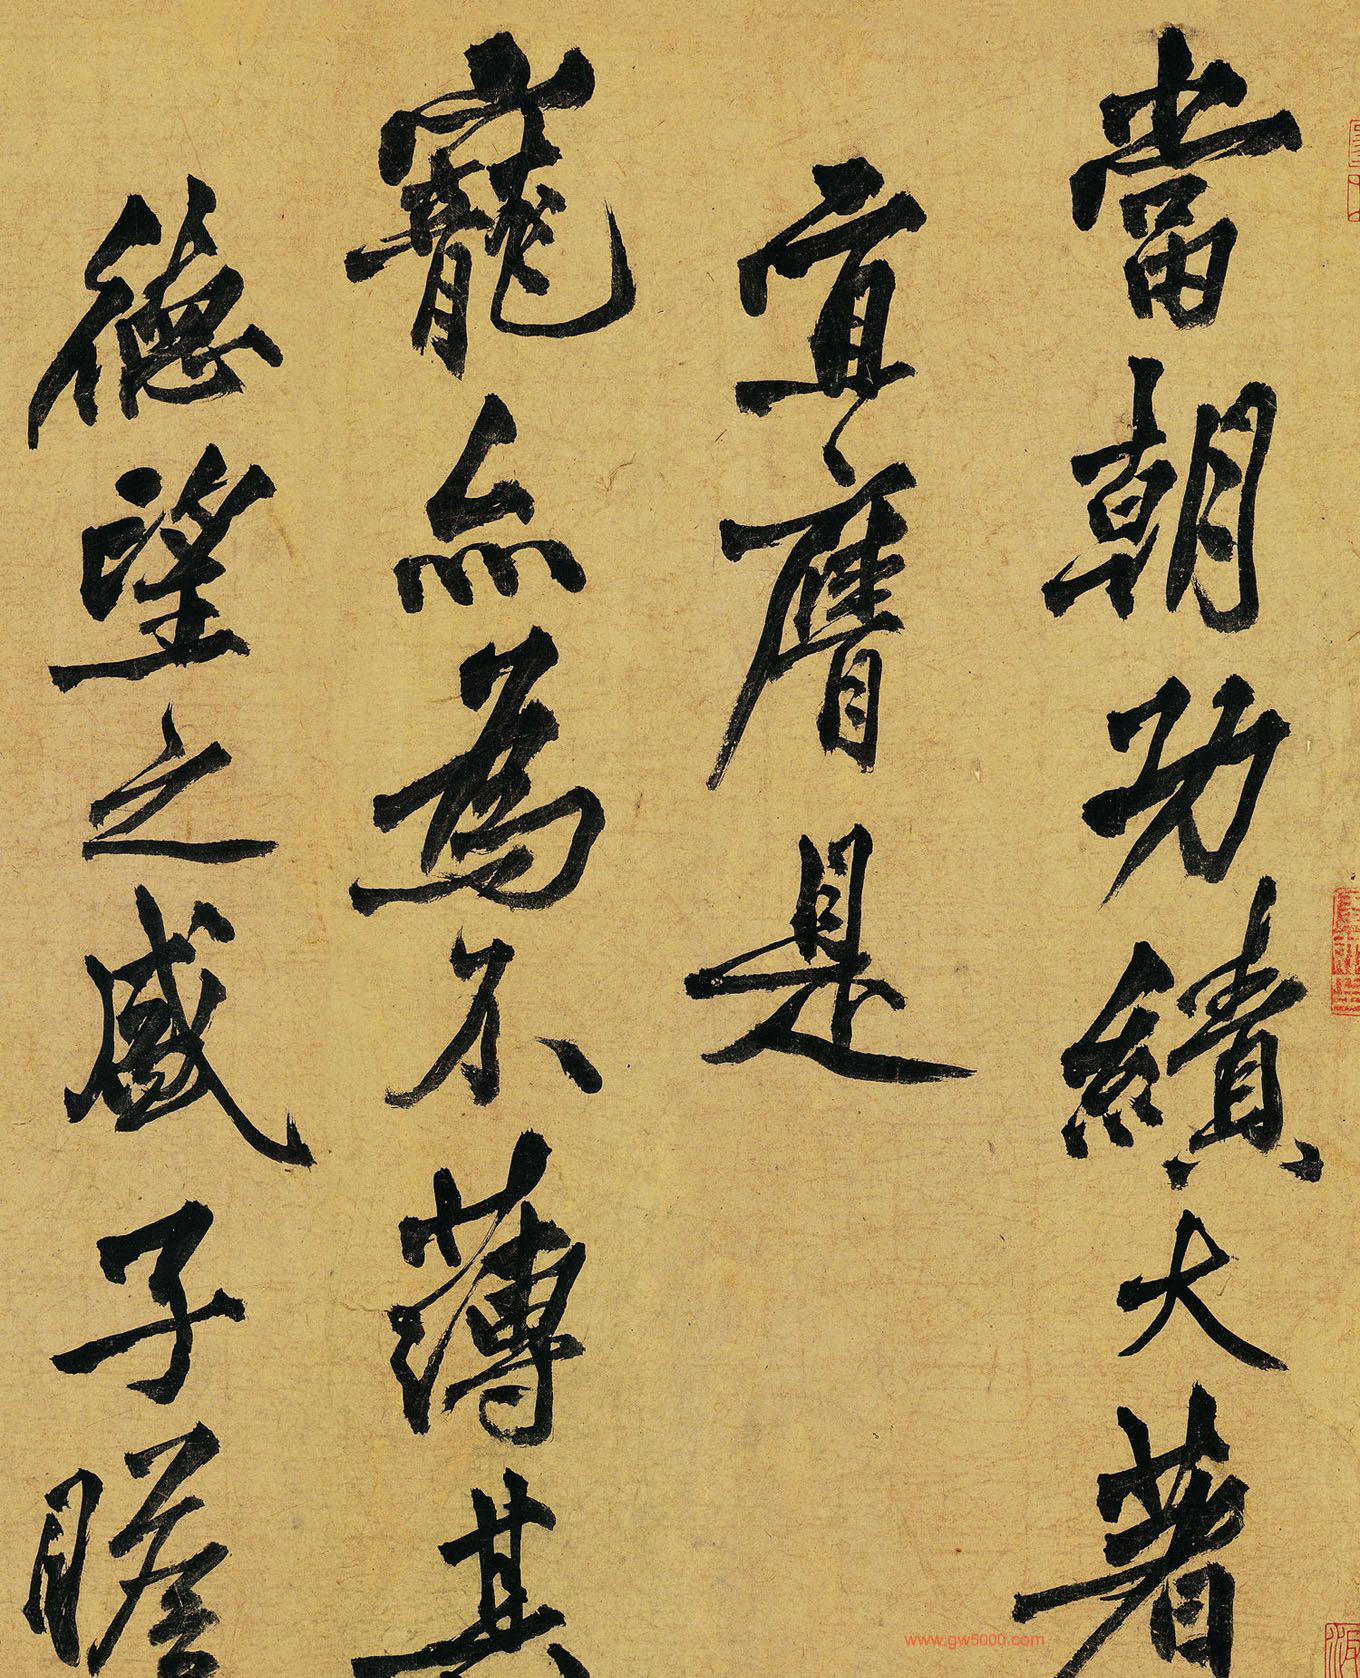 當朝功績大著
宜膺是
寵亦為不薄其
德望之盛子瞻
www.gw5000.com